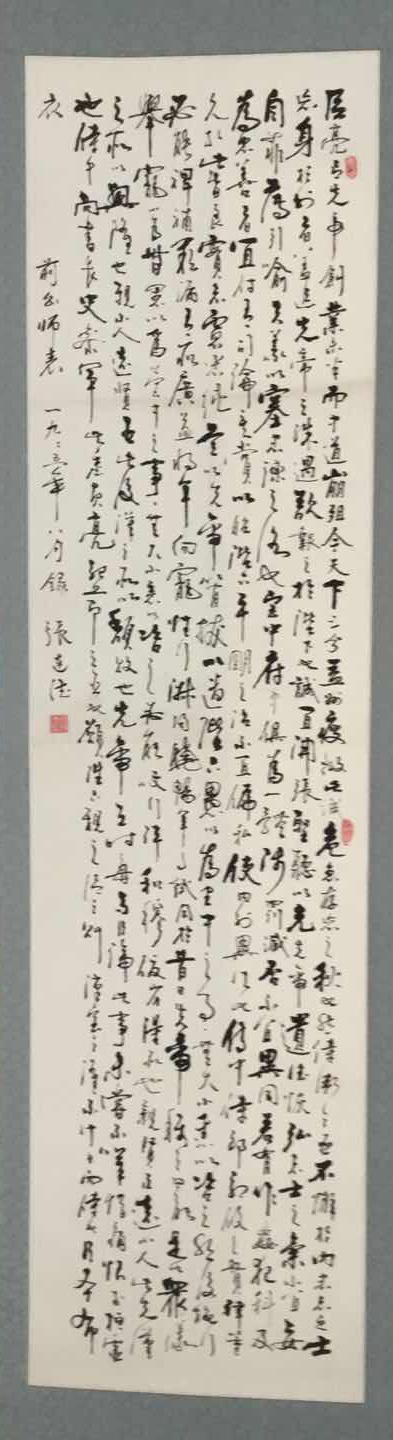 臣亮言先帝創業未半而中道崩殂今天下三分益州疲敝此誠危急存亡之秋也然侍衛之臣不懈於內忠志之士
忘身於外者蓋追先帝之殊遇欲報之於陛下也誠宜開張聖聽以光先帝遺德恢弘志士之氣不宜妄
自菲薄引喻失義以塞忠諫之路也宮中府中俱為一體陟罰臧否不宜異同若有作姦犯科及
為忠善者宜付有司論其刑賞以昭陛下平明之治不宜偏私使內外異法也侍中侍郎郭攸之費禕董
允等此皆良實志慮忠純是以先帝簡拔以遺陛下愚以為宮中之事事無大小悉以咨之然後施行
必能裨補闕漏有所廣益將軍向寵性行淑均曉暢軍事試用於昔日先帝稱之曰能是以眾議
舉寵為督愚以為營中之事事無大小悉以咨之必能使行陣和穆優劣得所也親賢臣遠小人此先漢
之所以興隆也親小人遠賢臣此後漢之所以傾頹也先帝在時每與臣論此事未嘗不嘆息痛恨於桓靈
也侍中尚書長史參軍此悉貞亮死節之臣也願陛下親之信之則漢室之隆可計日而待也臣本布
衣
前出師表 八月錄 張